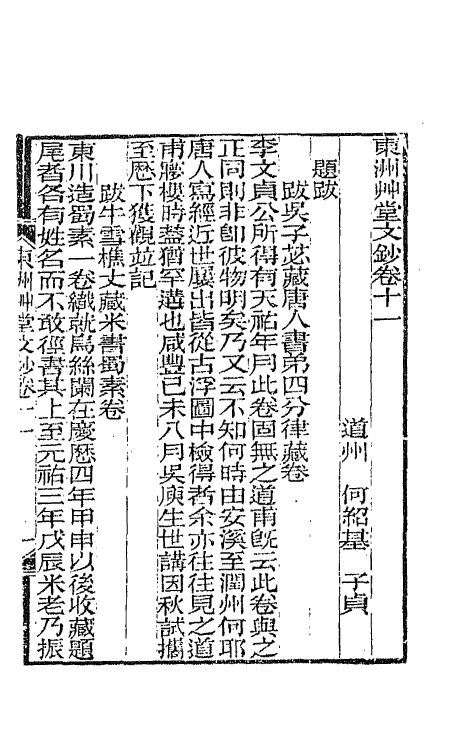 東洲艸堂文鈔卷十一
道州　何紹基　子貞
題跋
跋吳子苾藏唐人書弟四分律藏卷
李文貞公所得有天祐年月此卷固無之道甫旣云此卷與之
正同則非卽彼物明矣乃又云不知何時由安溪至潤州何耶
唐人寫經近世屢出皆从古浮圖中檢得者余亦往往見之道
甫謄樓時蓋猶罕遘也咸豐己未八月吳庚生世講因秋試攜
至厯下獲觀竝記
跋牛雪樵丈藏米書蜀素卷
東川造蜀素一卷織就烏絲闌在慶厯四年甲申以後收藏題
尾者各有姓名而不敢徑書其上至元祐三年戊辰米老乃振
東洲艸堂文鈔卷十一